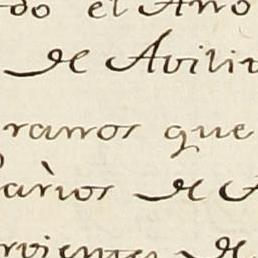 do el Año
de Avili
ranos que
arios de A
rvientes de